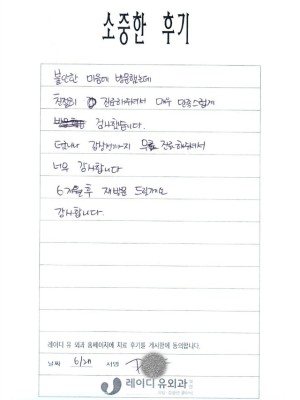 소중한 후기
불안한 마음에 방문했는데
친절히 진료해주셔서 매우 만족스럽게
검사했습니다.
더구나 갑상선까지 무료 진료해주셔서
너무 감사합니다
6개월 후 재방문 드릴게요
감사합니다.
레이디 유 외과 홈페이지에 치료 후기를 게시함에 동의합니다.
날짜 6/28 서명
레이디유외과의원